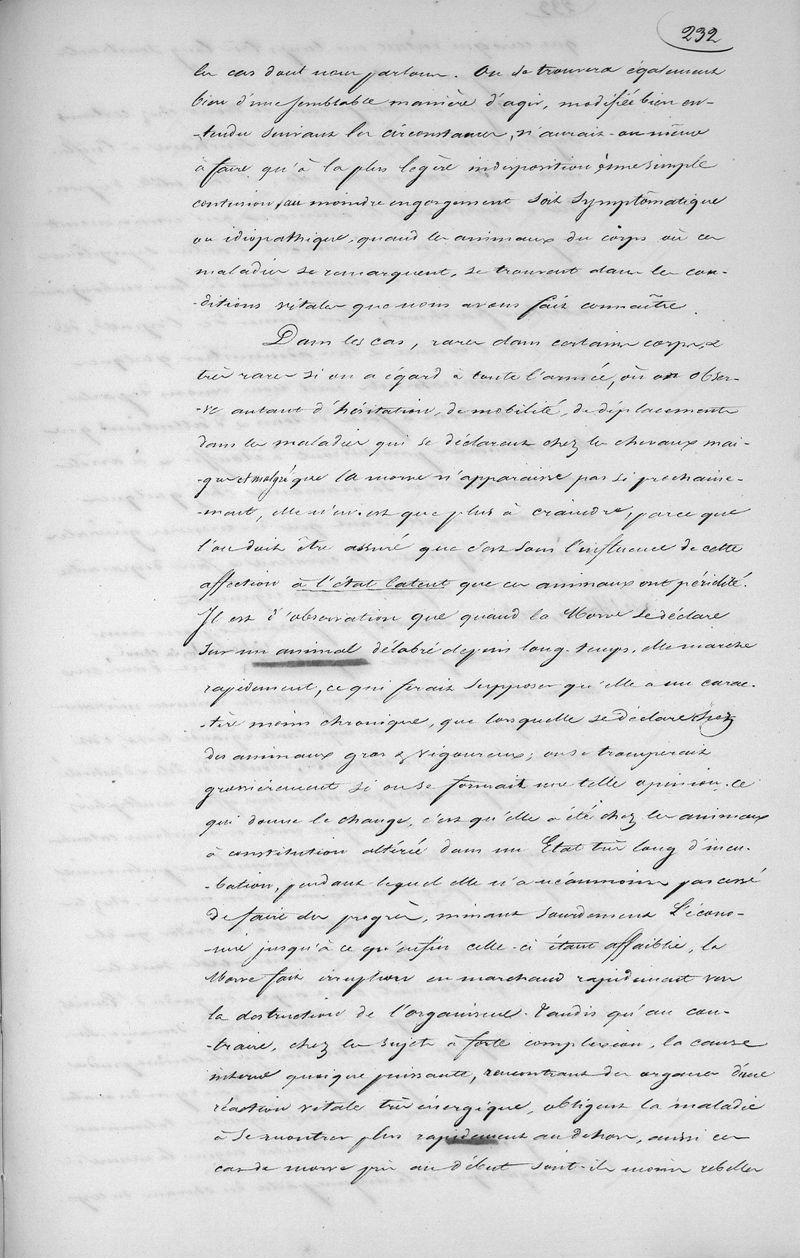 232
les cas dont nous parlons. On se trouvera également
bien d'une semblable manière d'agir, modifiée bien en-
-tendu suivant les circonstances, n'aurait-on même
à faire qu'à la plus légère indisposition, une simple
contusion, au moindre engorgement soit symptômatique
ou idiopathique, quand les animaux du corps où ces
maladies se remarquent, se trouvent dans les con-
-ditions vitales que nous avons fait connaître.
Dans les cas, rares dans certains corps, &
très rares si on a égard à toute l'armée, où on obser-
-ve autant d'hésitation, de mobilité, de déplacements
dans les maladies qui se déclarent chez les chevaux mai-
-gres et malgré que la morve n'apparaisse pas si prochaine-
-ment, elle n'en est que plus à craindre, parce que
l'on doit être assuré que c'est sous l'influence de cette
affection à l'état latent que ces animaux ont périclité.
Il est d'observation que quand la Morve se déclare
sur un animal délabré depuis long-temps, elle marche
rapidement, ce qui ferait supposer qu'elle a un carac-
-tère moins chronique, que lorsqu'elle se déclare chez
des animaux gras & vigoureux; on se tromperait
grossièrement si on se formait une telle opinion. Ce
qui donne le change, c'est qu'elle a été chez les animaux
à constitution altérée dans un Etat très long d'incu-
-bation, pendant lequel elle n'a néanmoins pas cessé
de faire des progrès, minant sourdement l'écono-
-mie jusqu'à ce qu'enfin celle-ci étant affaiblie, la
Morve fait irruption en marchant rapidement vers
la destruction de l'organisme. Tandis qu'au con-
-traire, chez les sujets à forte complexion, la cause
interne quoique puissante, rencontrant des organes d'une
réaction vitale très énergique, obligent la maladie
à se montrer plus rapidement au dehors, aussi ces
cas de morve pris au début sont-ils moins rebelles